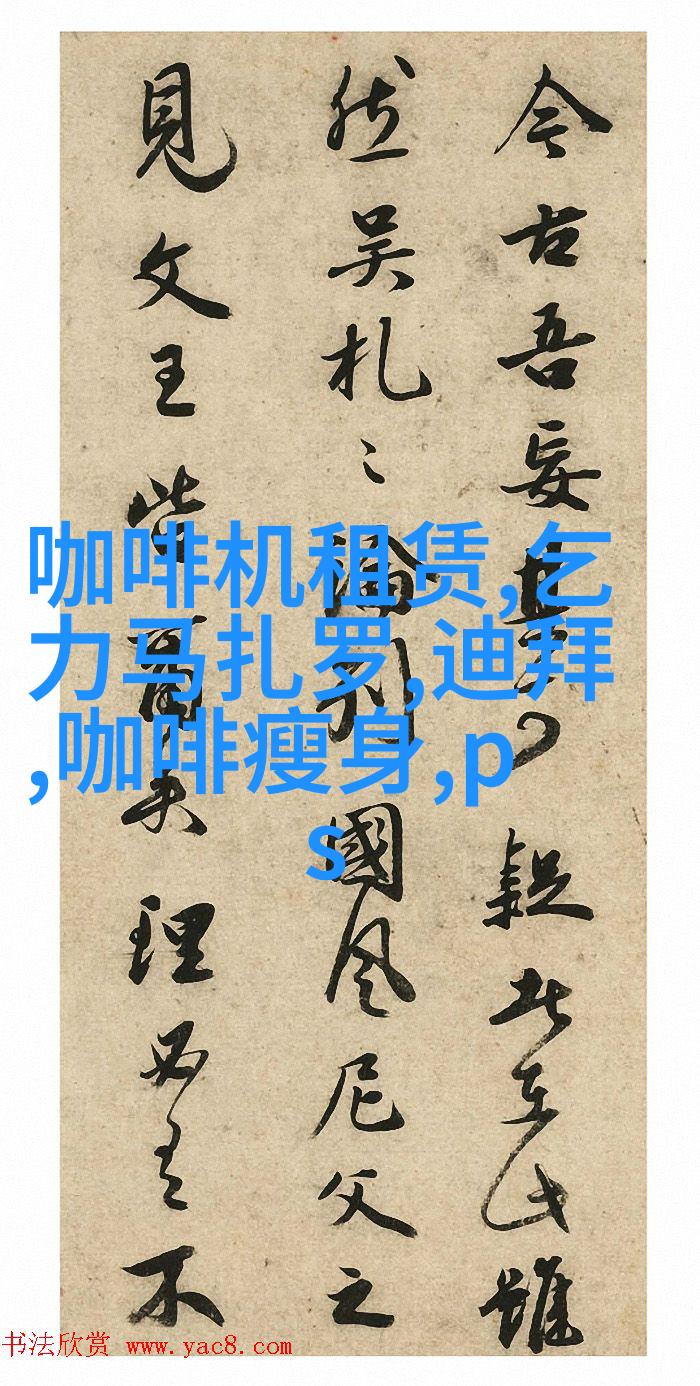 今古吾妄疑雖
然吴札〻論列國風尼父之
見文王皆理必有不
咖啡机租赁,乞
力马扎罗,迪拜
,咖啡瘦身,p
s
书法欣赏 www.yac8.com